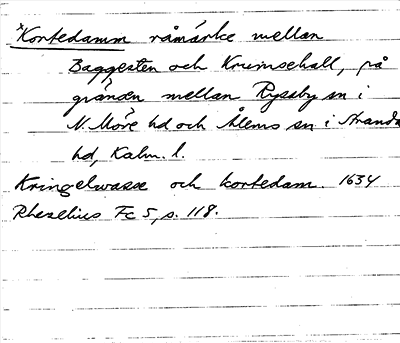 *Kortedamm råmärke mellan
Baggesten och Krumsehall, på
gränsen mellan Ryssby sn i
N. Möre hd och Ålems sn i Stranda
hd, Kalm. l.
Kringelwasse och kortedam. 1634
Rhezelius Fc 5, s. 118.